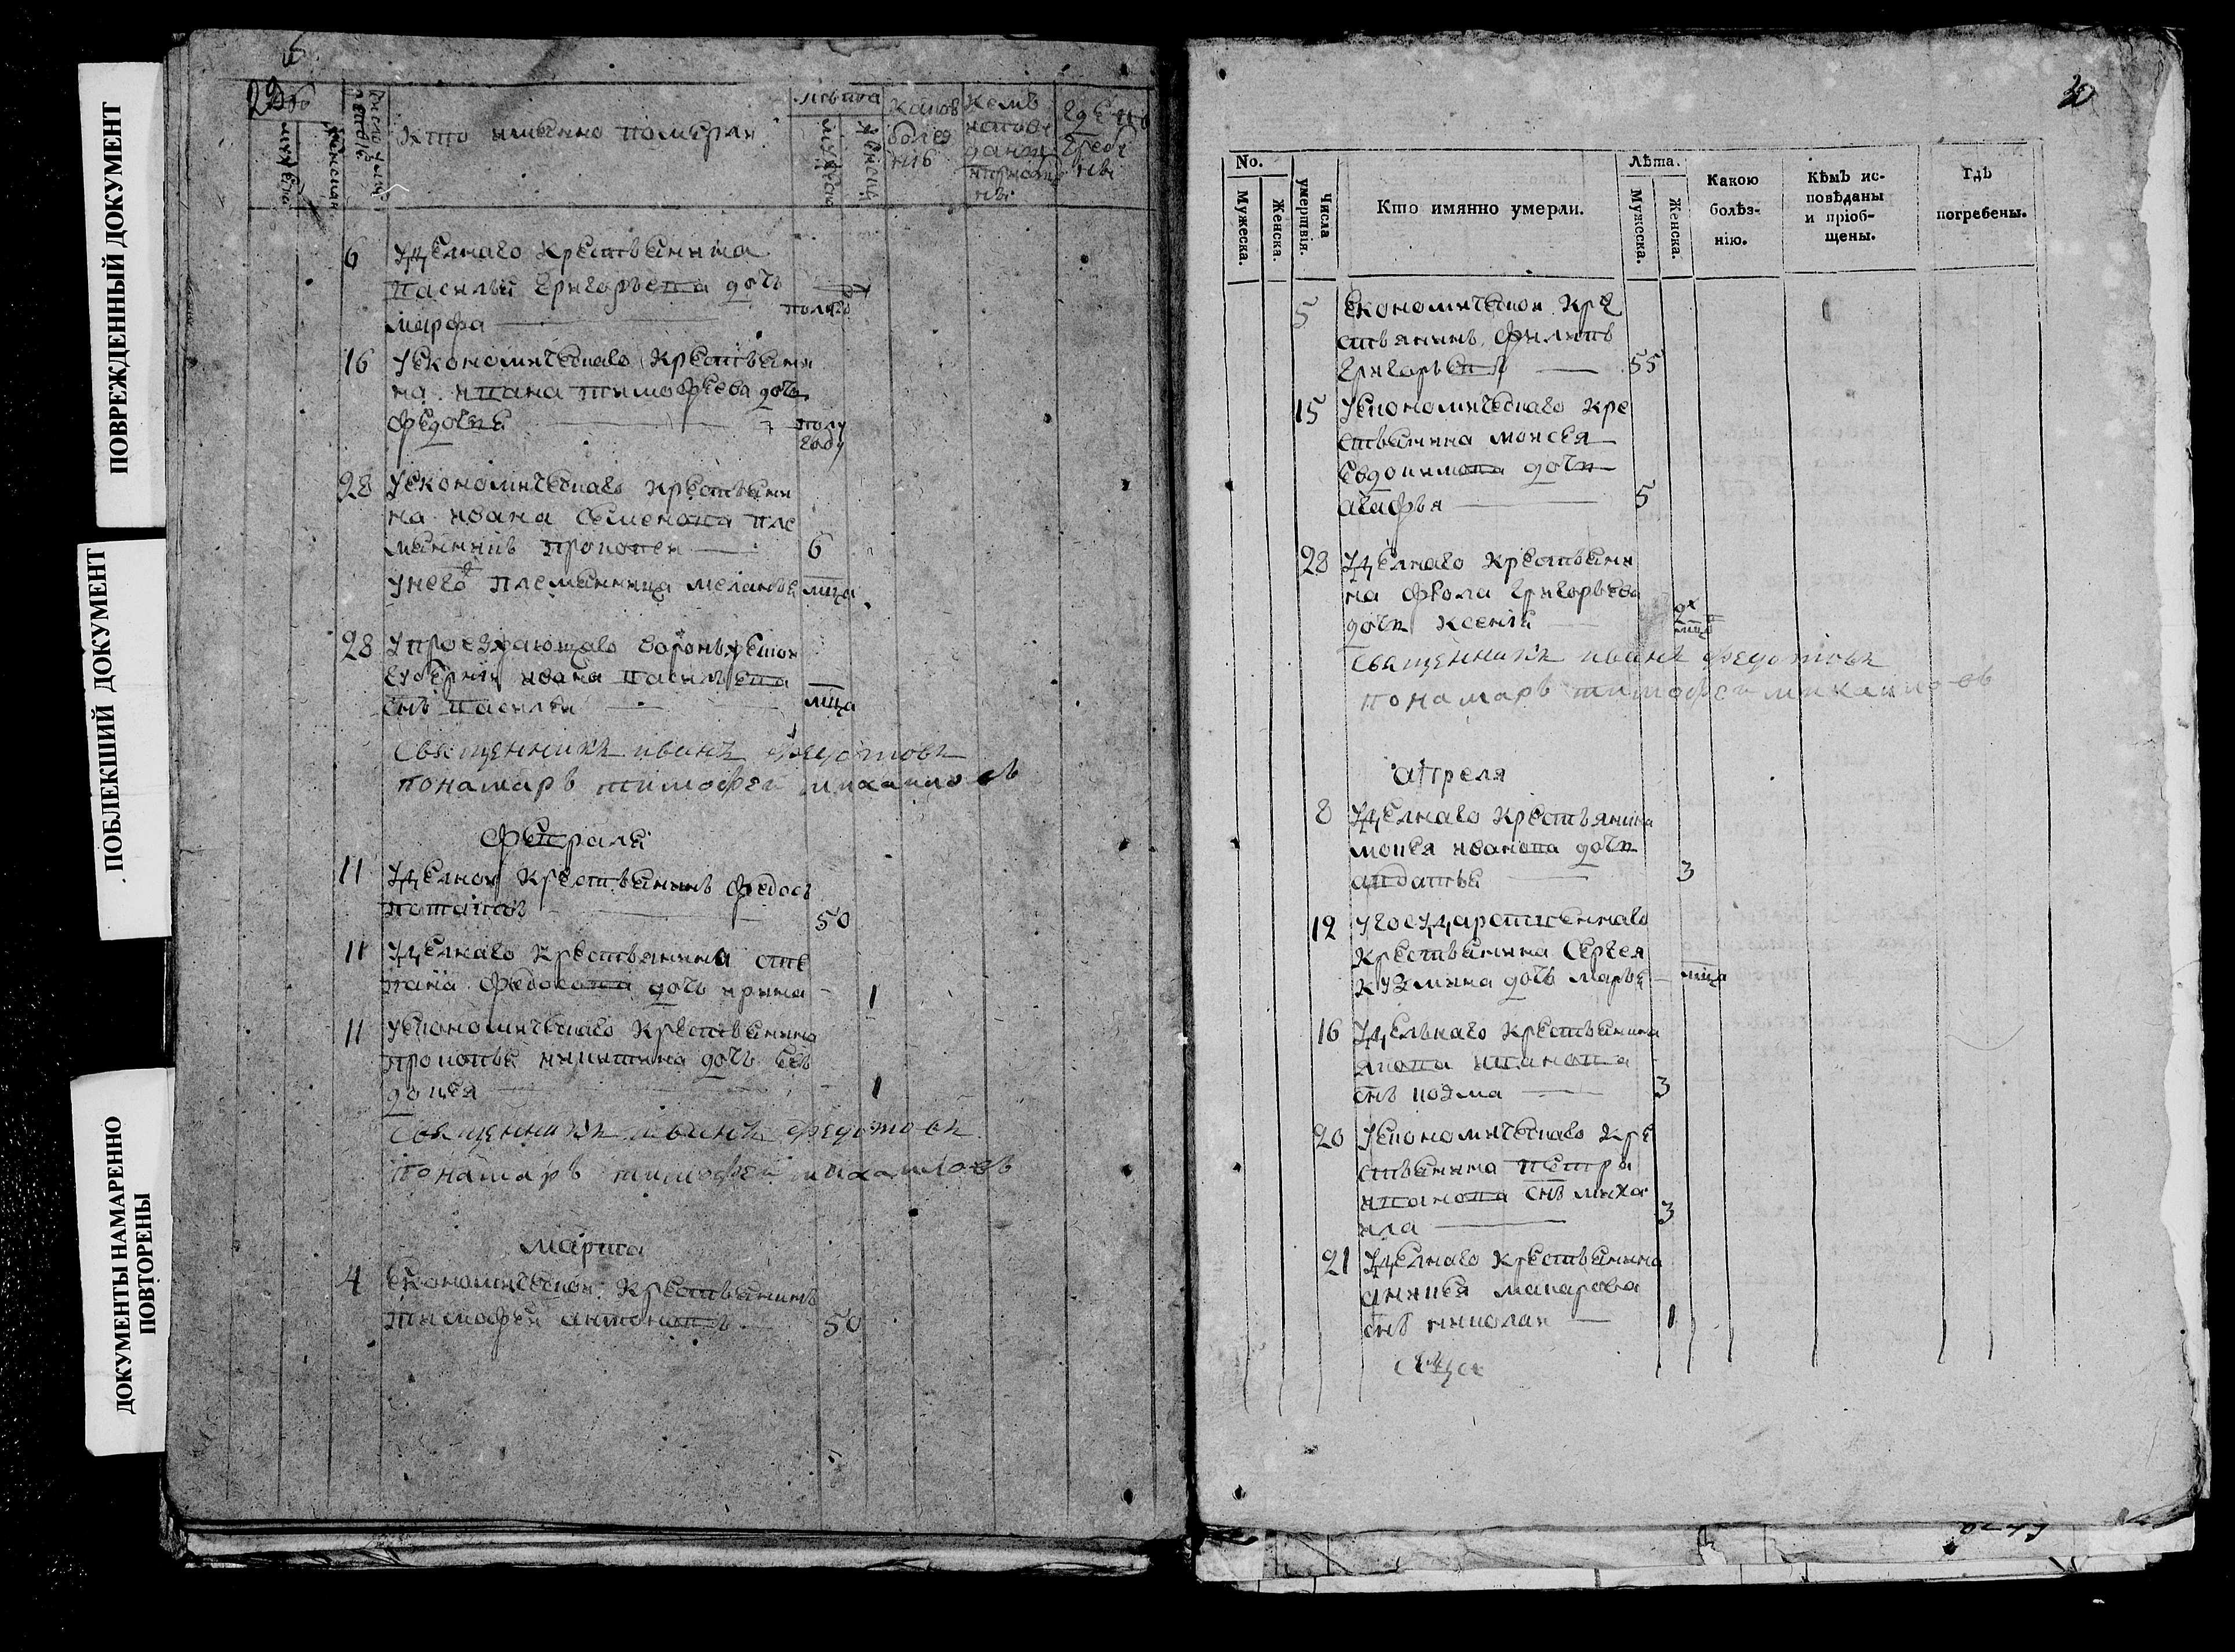 ПОВРЕЖДЕННЫЙ ДОКУМЕНТ
ПОБЛЕКШИЙ ДОКУМЕНТ
ДОКУМЕНТЫ НАМАРЕННО
ПОВТОРЕНЫ
кто имянно померли
лѣта
какою
болез
нию
кемъ
6 удѣлнаго крестьянина
василья григорьева дочь
марфа
16 Уекономическаго крестьяни
на ивана тимофѣева дочь
федосья
полу
году
28 Уекономическаго крестьяни
на ивана семенова пле
манникъ прокопеи 6
унего племянница меланья мца
28 Упроезжающаго воронежской
губернии ивана васильева
снъ василеи мца
священникъ иванъ федотовъ
понамарь тимофеи михаиловъ
февраля
11 Удѣлнои крестьянинъ федосъ
потаповъ 50
11 Удѣлнаго крестьянина сте
пана федосова дочь ирина 1
11 Уекономическаго крестьянина
прокопья никитина дочь ев
докея 1
священникъ иванъ федотовъ
понамарь тимофеи михаиловъ
марта
4 Економическои крестьянинъ
тимофеи антоновъ 50
30
No.
Мужеска.
Женска.
Числа умертвія.
Кто имянно умерли.
Лѣта.
Мужеска.
Женска.
Какою
болѣз-
нію.
Кѣмъ ис-
повѣданы
и пріоб-
щены.
Гдѣ
погребены.
5 Економическои кре
стьянинъ филипъ
григорьевъ 55
15 Уекономическаго кре
стьянина моисея
евдокимова дочи
агафья 5
28 Удѣлнаго крестьяни
на фрола григорьева
дочи ксения
священникъ иванъ федотовъ
понамарь тимофеи михаиловъ
апреля
8 Удѣлнаго крестьянина
мокея иванова дочи
авдотья 3
12 Угосударственнаго
крестьянина сергея
кузмина дочь марья мца
16 Удѣльнаго крестьянина
якова иванова
снъ козма 3
20 Уекономическаго кре
стьянина петра
иванова снъ миха
ила 3
21 Удѣлнаго крестьянина
аникея макарова
снъ николаи 1